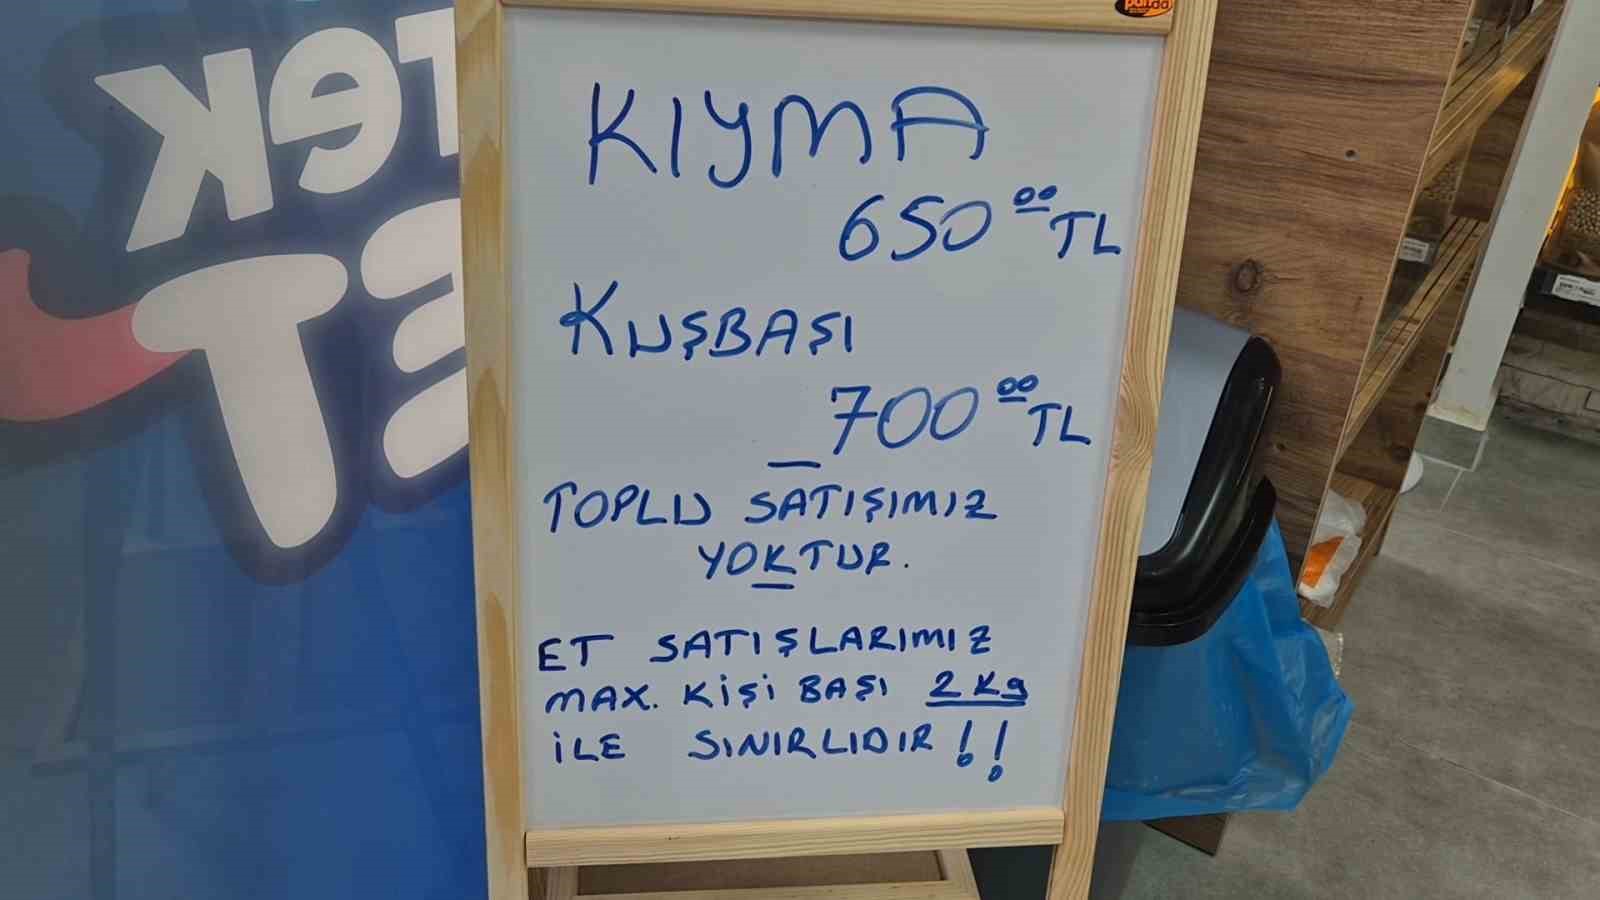 KIYMA
650 00 TL
KUŞBAŞI
700 00 TL
TOPLU SATIŞIMIZ
YOKTUR.
ET SATIŞLARIMIZ
MAX. KİŞİ BAŞI 2 Kg
İLE SINIRLIDIR !!
tek
ET